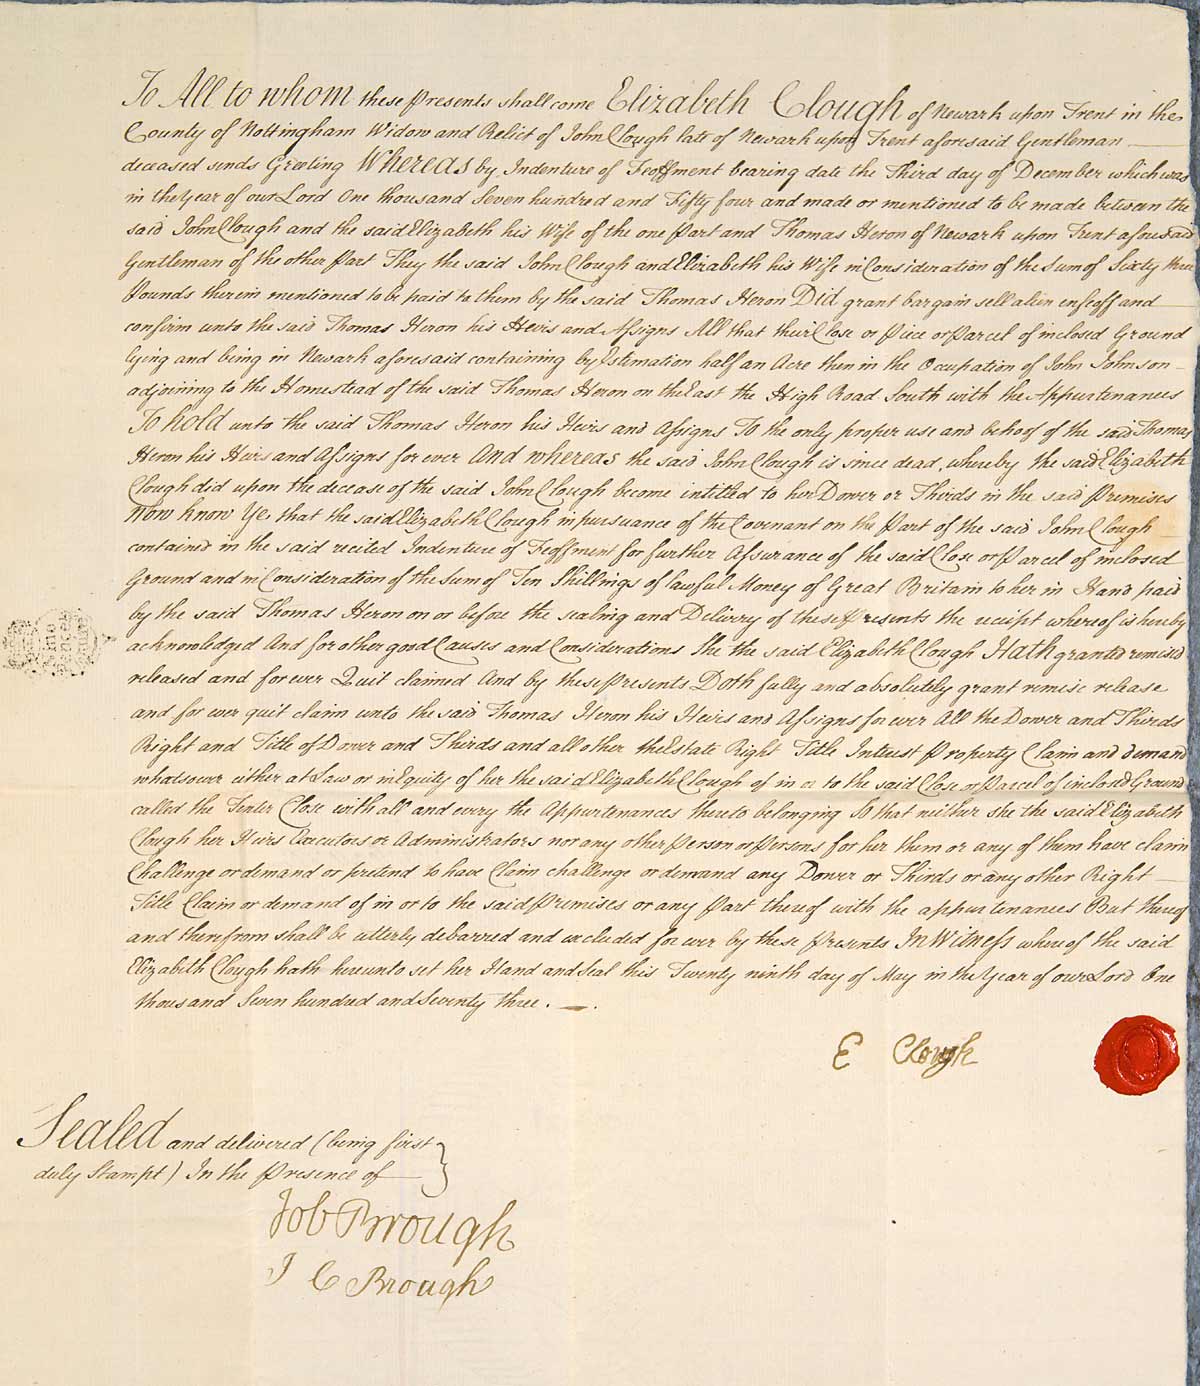 To All to whom these Presents shall come Elizabeth Clough of Newark upon Trent in the
County of Nottingham Widow and Relict of John Clough late of Newark upon Trent aforesaid Gentleman
deceased sends Greeting Whereas by Indenture of Feoffment bearing date the Third day of December which was
in the Year of our Lord One thousand Seven hundred and Fifty four and made or mentioned to be made between the
said John Clough and the said Elizabeth his Wife of the one Part and Thomas Heron of Newark upon Trent aforesaid
Gentleman of the other Part They the said John Clough and Elizabeth his Wife in Consideration of the Sum of Sixty three
Pounds therein mentioned to be paid to them by the said Thomas Heron Did grant bargain sell alien enfeoff and
confirm unto the said Thomas Heron his Heirs and Assigns All that their Close or Piece or Parcel of inclosed Ground
lying and being in Newark aforesaid containing by Estimation half an Acre then in the Occupation of John Johnson
adjoining to the Homestead of the said Thomas Heron on the East the High Road South with the Appurtenances
To hold unto the said Thomas Heron his Heirs and Assigns To the only proper use and behoof of the said Thomas
Heron his Heirs and Assigns for ever And whereas the said John Clough is since dead, whereby the said Elizabeth
Clough did upon the decease of the said John Clough become intitled to her Dower or Thirds in the said Premises
Now know Ye, that the said Elizabeth Clough in pursuance of the Covenant on the Part of the said John Clough
contained in the said recited Indenture of Feoffment for further Assurance of the said Close or Parcel of inclosed
Ground and in Consideration of the Sum of Ten Shillings of lawful Money of Great Britain to her in Hand paid
by the said Thomas Heron on or before the sealing and Delivery of these Presents the receipt whereof is hereby
acknowledged And for other good Causes and Considerations She the said Elizabeth Clough Hath granted remised
released and for ever Quit claimed And by these Presents Doth fully and absolutely grant remise release
and for ever quit claim unto the said Thomas Heron his Heirs and Assigns for ever All the Dower and Thirds
Right and Title of Dower and Thirds and all other the Estate Right Title Interest Property Claim and demand
whatsoever either at Law or in Equity of her the said Elizabeth Clough of in or to the said Close or Parcel of inclosed Ground
called the Tenter Close with all and every the Appurtenances thereto belonging So that neither she the said Elizabeth
Clough her Heirs Executors or Administrators nor any other Person or Persons for her them or any of them have claim
Challenge or demand or pretend to have Claim challenge or demand any Dower or Thirds or any other Right
Title Claim or demand of in or to the said Premises or any Part thereof with the appurtenances But thereof
and therefrom shall be utterly debarred and excluded for ever by these Presents In Witness whereof the said
Elizabeth Clough hath hereunto set her Hand and Seal this Twenty ninth day of May in the Year of our Lord One
thousand Seven hundred and Seventy three.
E Clough
Sealed and delivered (being first
duly Stampt) In the Presence of
Job Brough
J C Brough